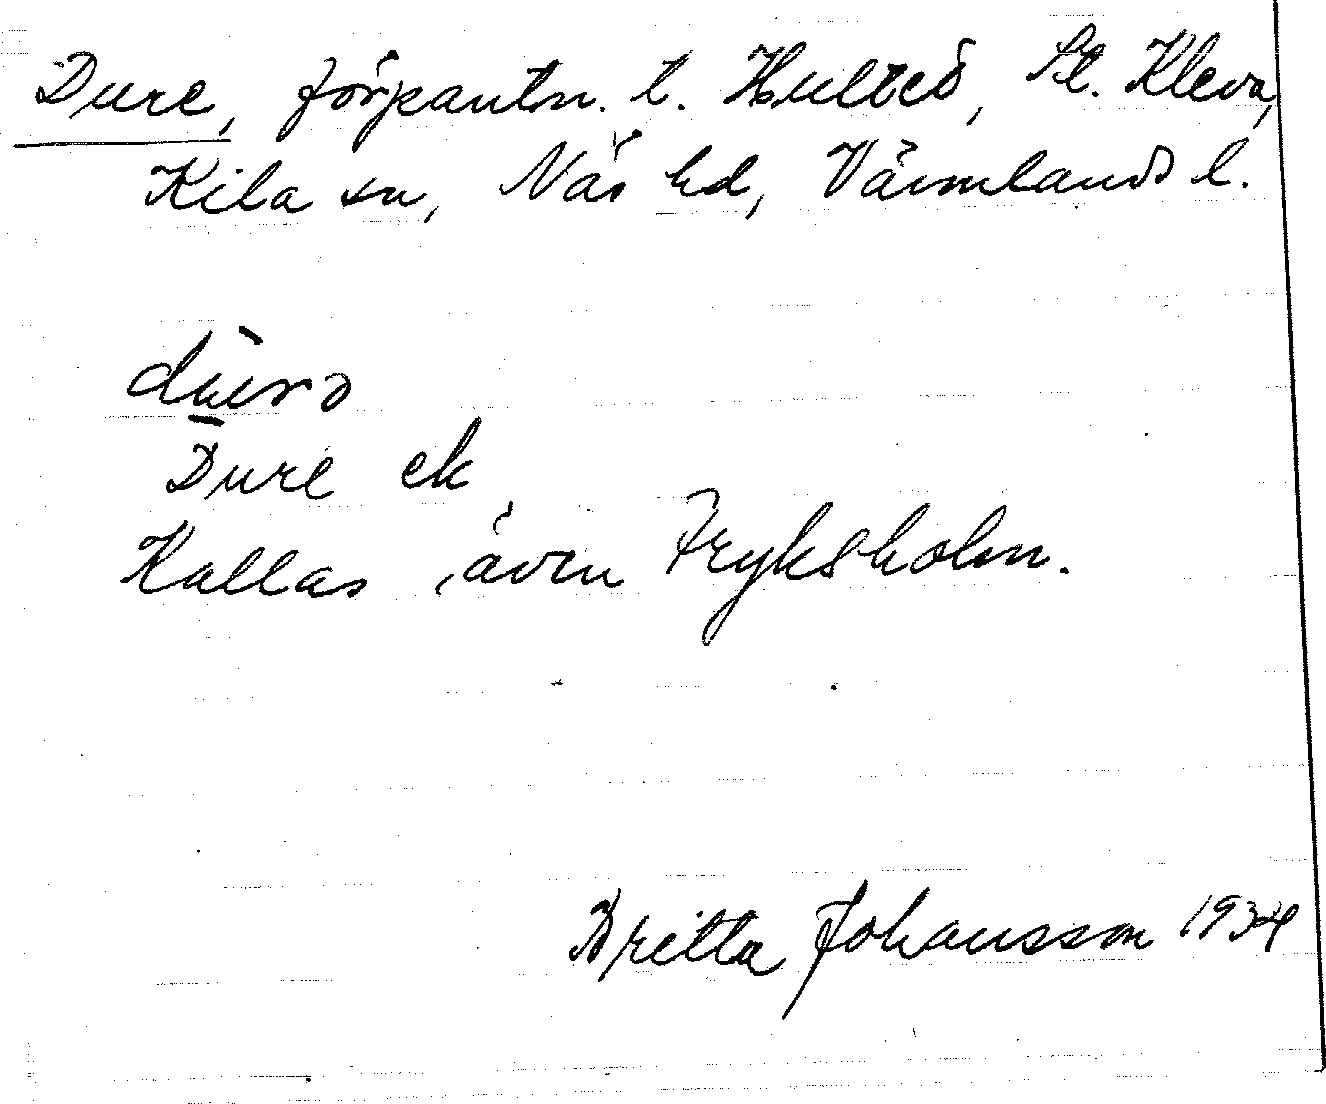 Dure, förpantn. t. Hultet, St. Kleva,
Kila sn, Näs hd, Värmlands l.
dùrə
Dure ek
Kallas även Fryksholm.
Britta Johansson 1934